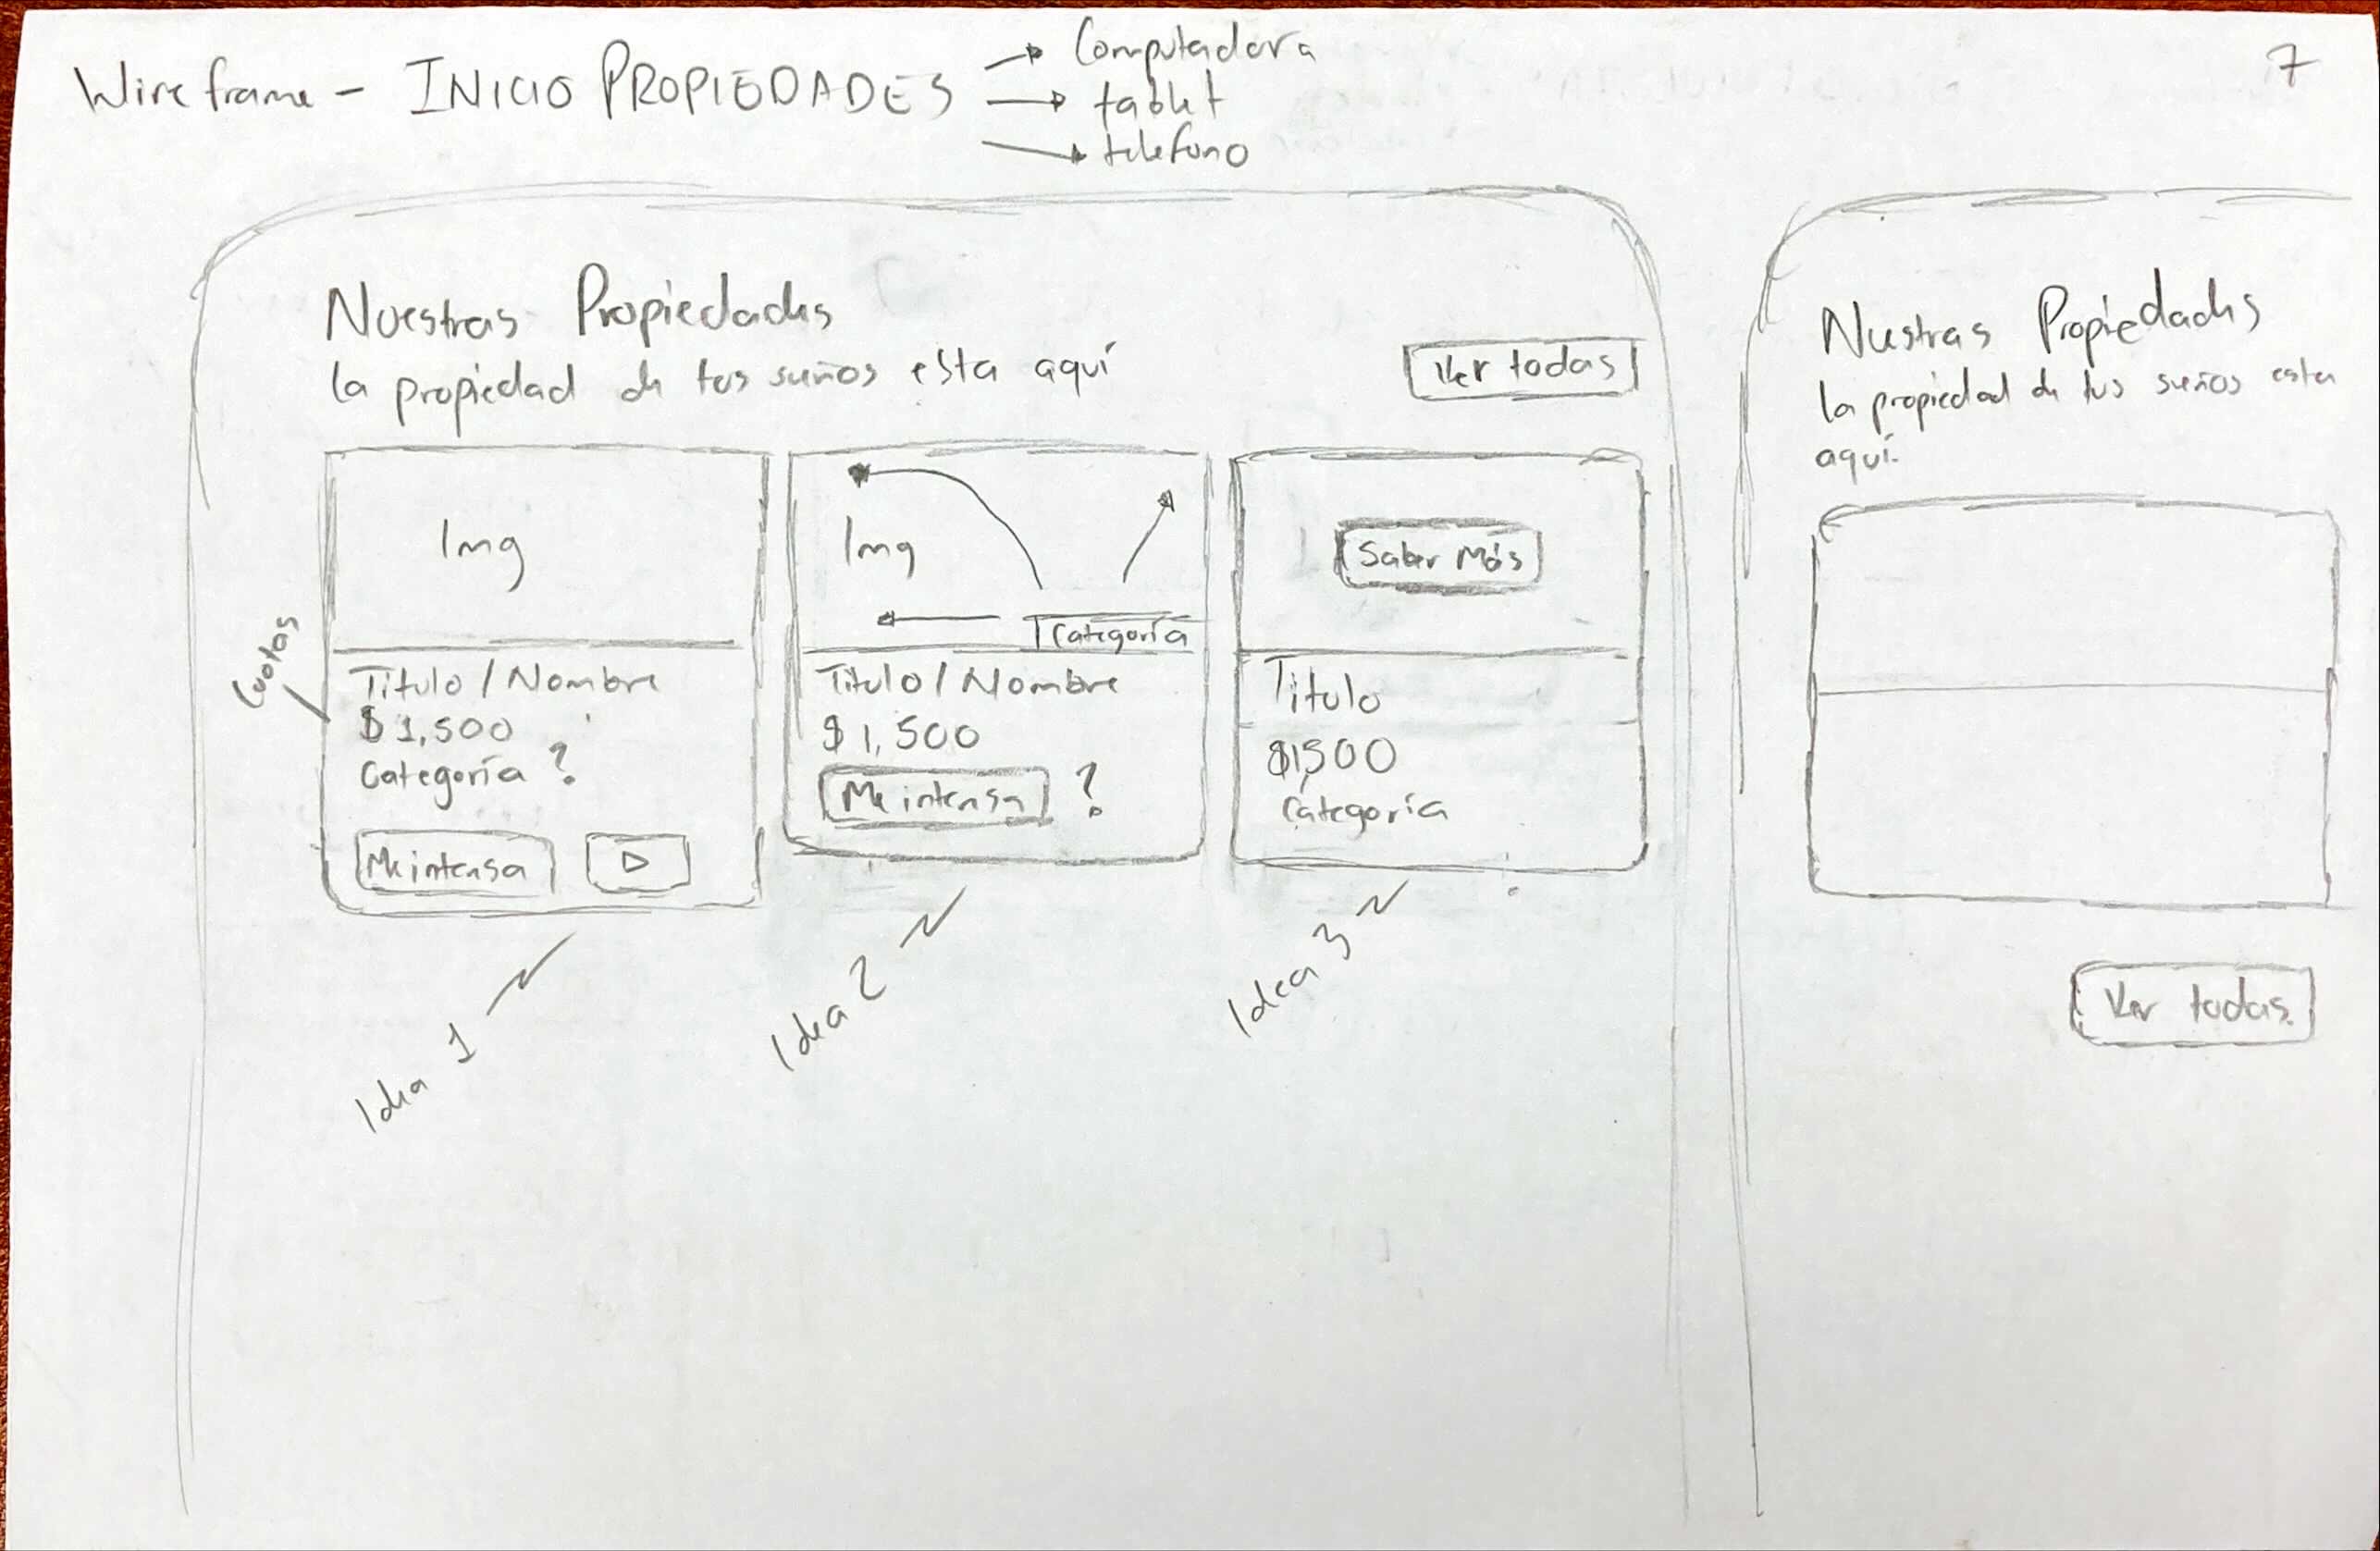 Wireframe - INICIO PROPIEDADES
Computadora
tablet
telefono
7
Nuestras Propiedades
la propiedad de tus sueños esta aquí
Ver todas
Img
Cuotas
Titulo / Nombre
$1,500
Categoría ?
Me intensa
Img
Categoría
Titulo / Nombre
$1,500
Me intensa ?
Saber Más
Titulo
$1,500
Categoría
Idea 1
Idea 2
Idea 3
Nustras Propiedades
la propiedad de tus sueños esta
aquí.
Ver todas.